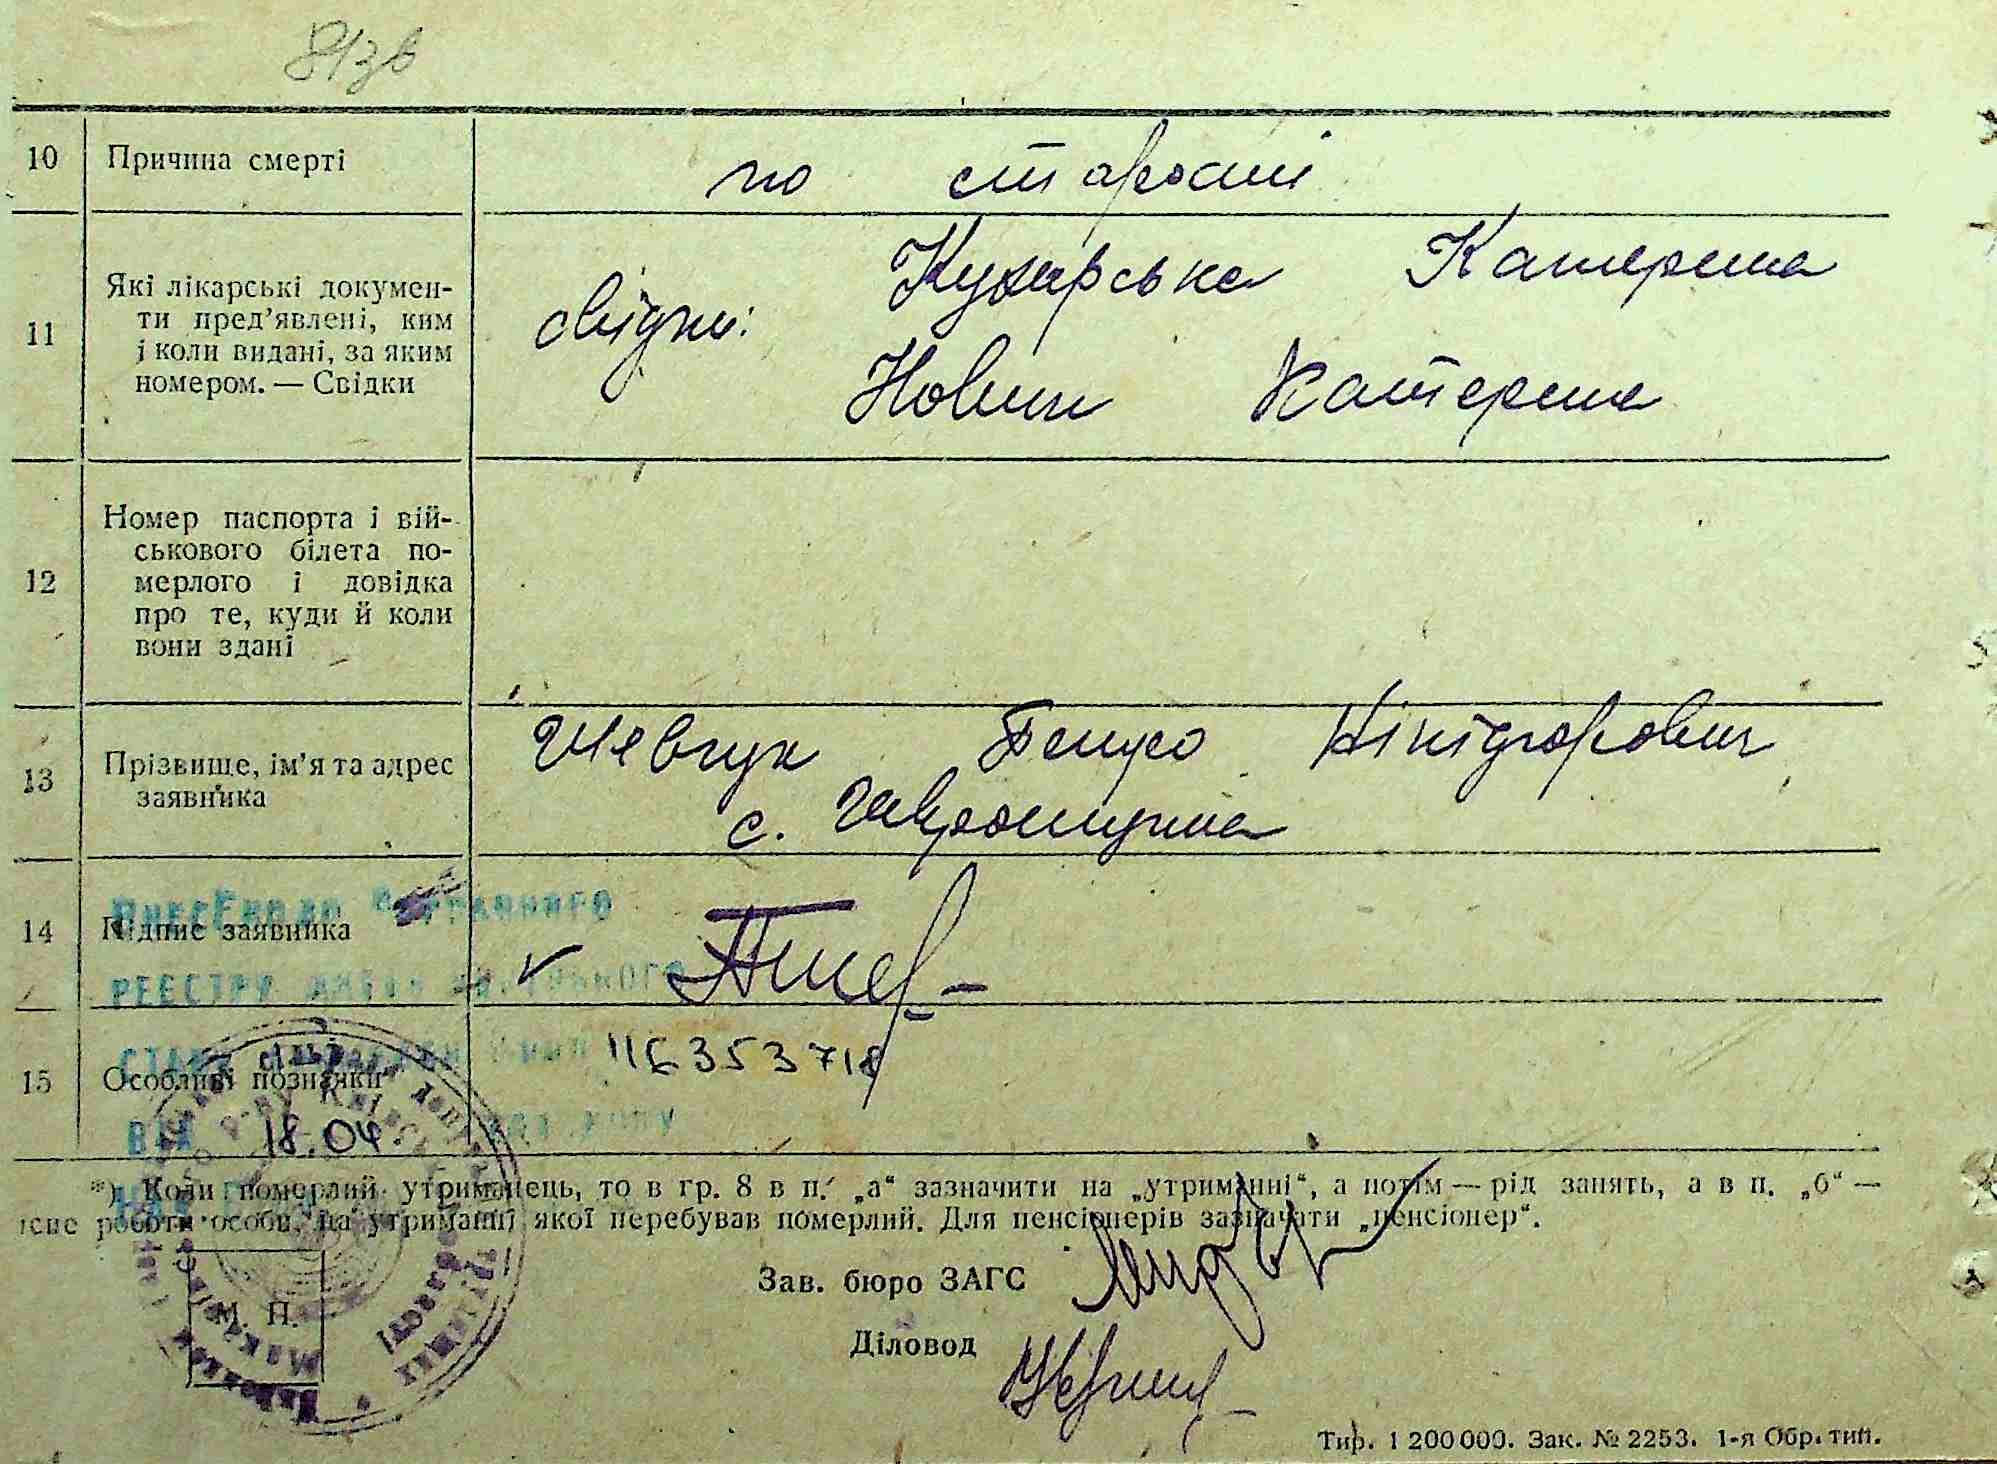 10 Причина смерті по старості
11 Які лікарські докумен-
ти пред'явлені, ким
і коли видані, за яким
номером. — Свідки
свідки: Кухарська Катерина
Новик Катерина
12 Номер паспорта і вій-
ськового білета по-
мерлого і довідка
про те, куди й коли
вони здані
13 Прізвище, ім'я та адрес
заявника
Шевчук Нікіфорович
с. Гавронщина
14 Підпис заявника
РЕЄСТРУ
15 Особливі познаки 116353718
18.04.
*) Коли померлий утриманець, то в гр. 8 в п. „а“ зазначити на „утриманні“, а потім — рід занять, а в п. „б“ —
роботи особи, на утриманні якої перебував померлий. Для пенсіонерів зазначати „пенсіонер“.
М. П.
Зав. бюро ЗАГС
Діловод
Тир. 1 200 000. Зак. № 2253. 1-я Обр. тип.